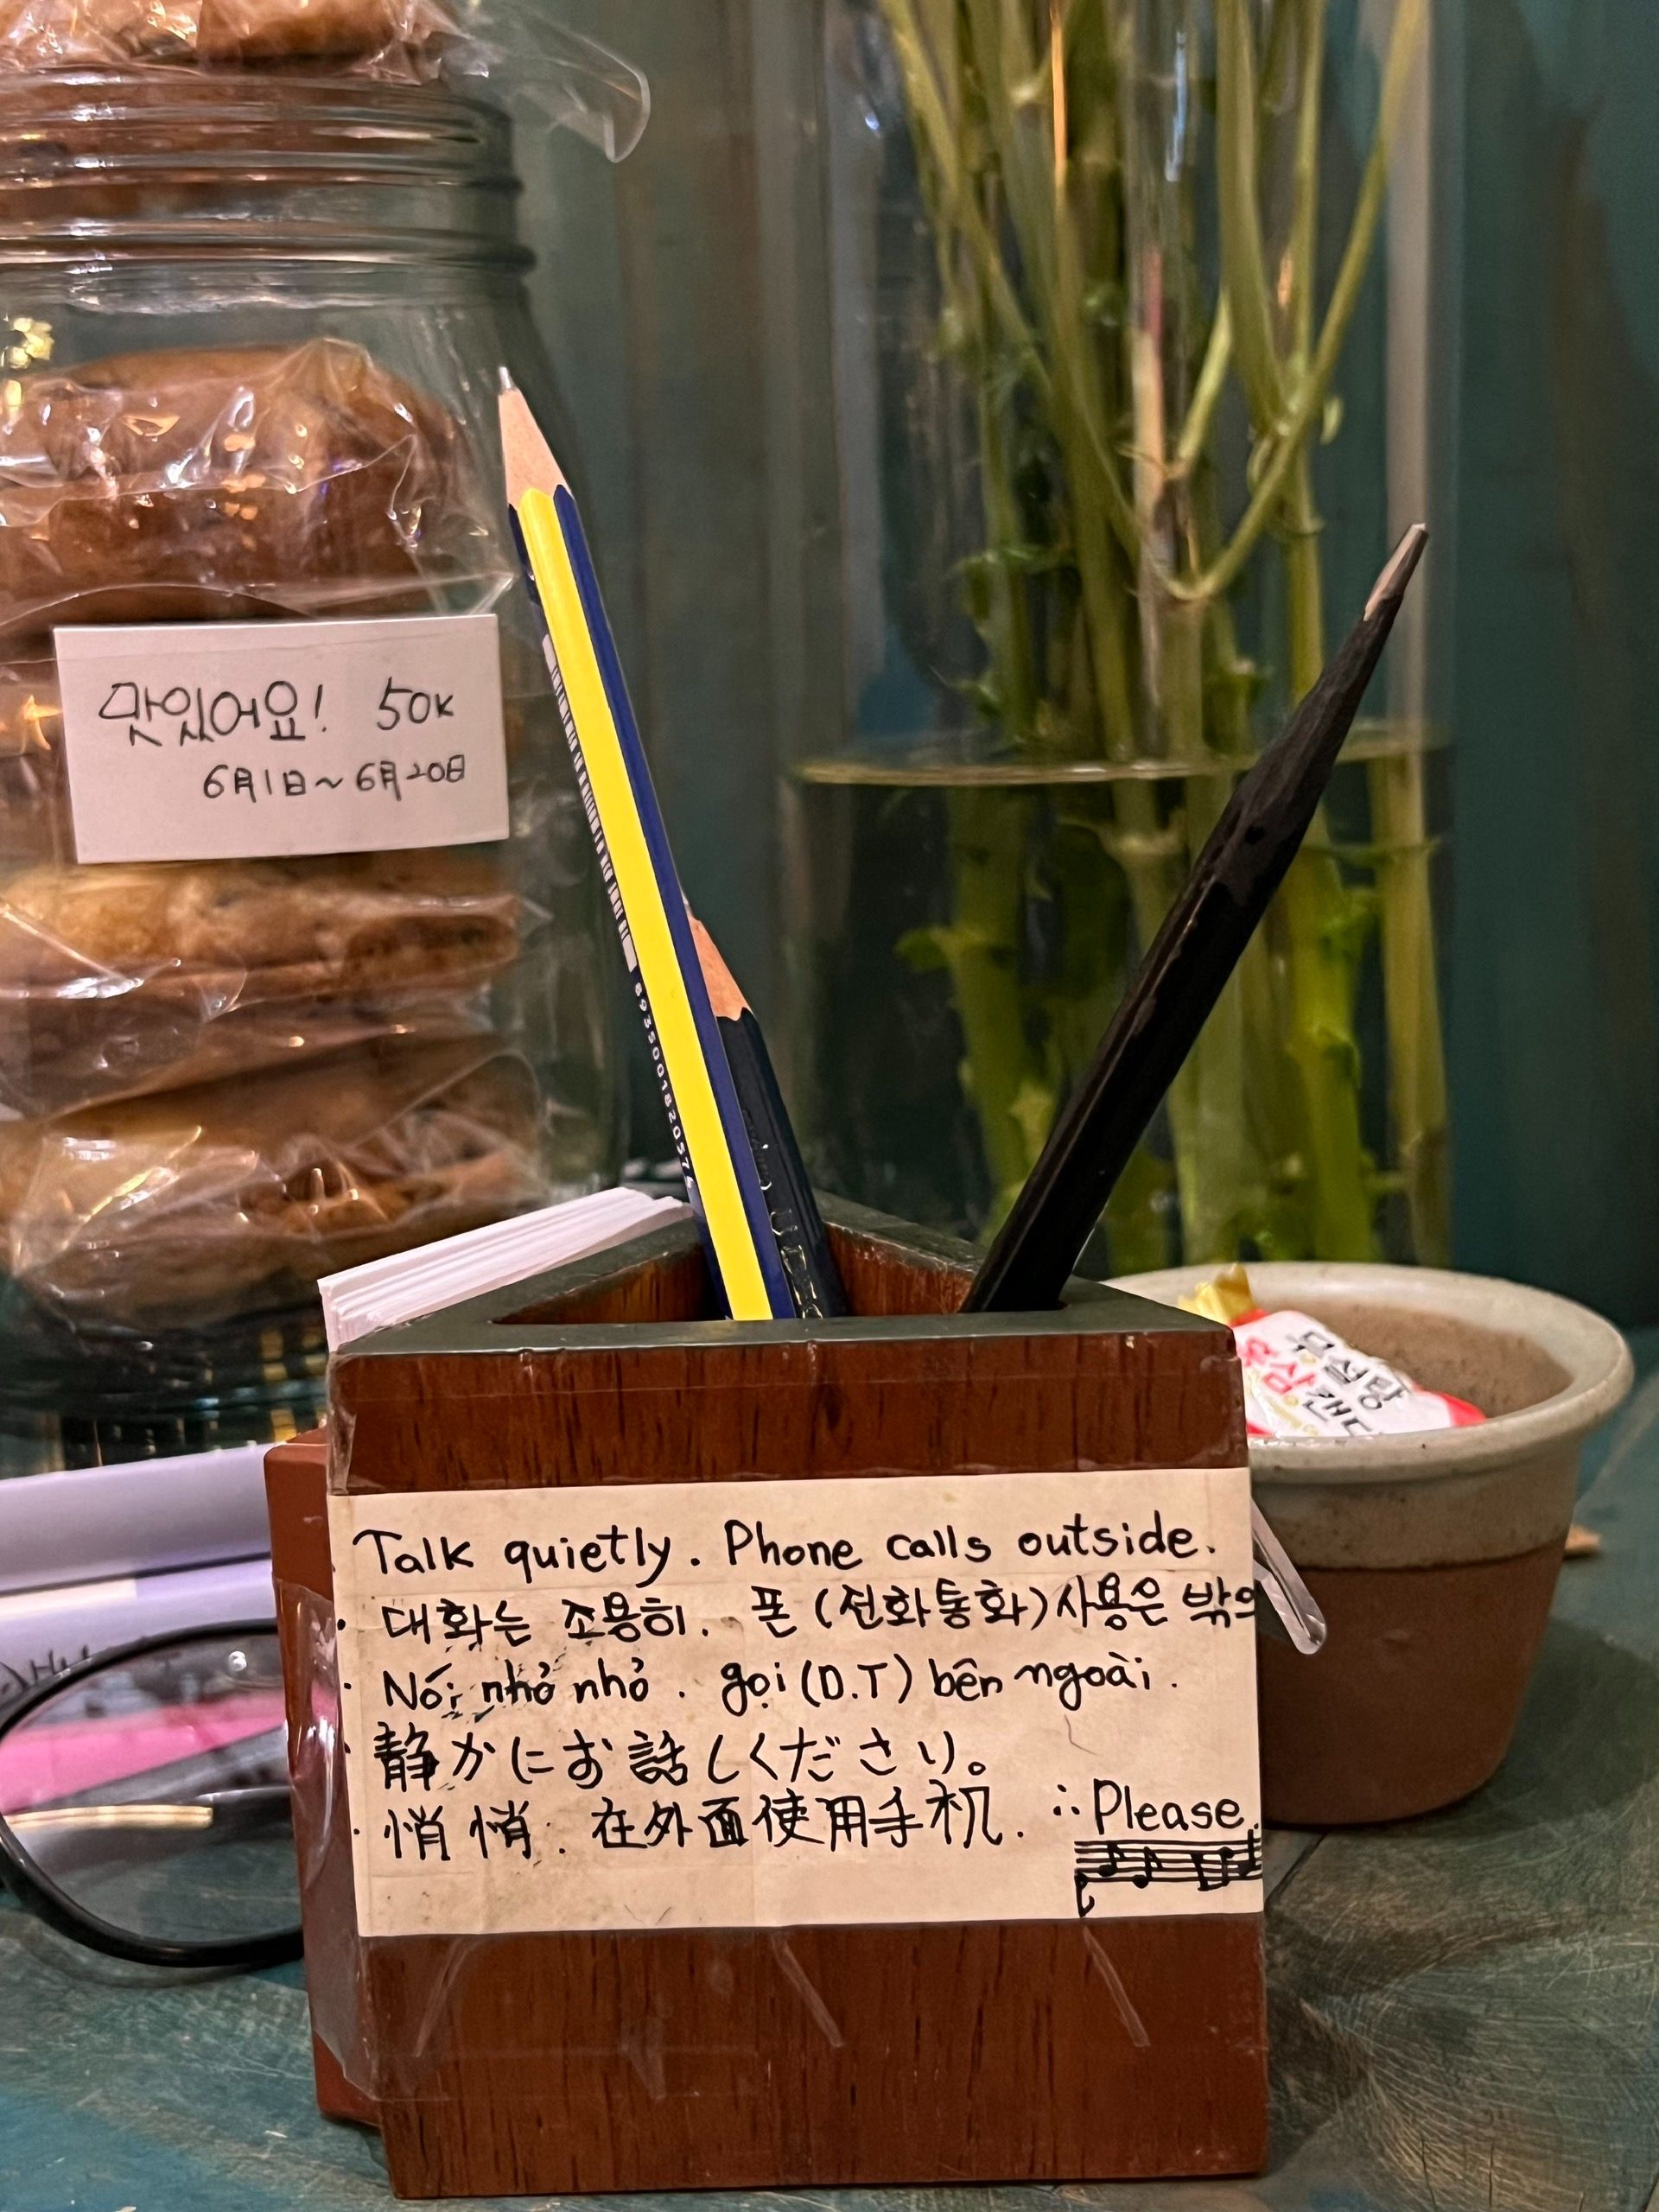 맛있어요! 50K
6月1日~6月20日
8935001820574
무설탕
홍삼
캔디
Talk quietly. Phone calls outside.
· 대화는 조용히. 폰 (전화통화) 사용은 밖에
· Nói nhỏ nhỏ. gọi (D.T) bên ngoài.
· 静かにお話しください。
· 悄悄. 在外面使用手机.
∴ Please.